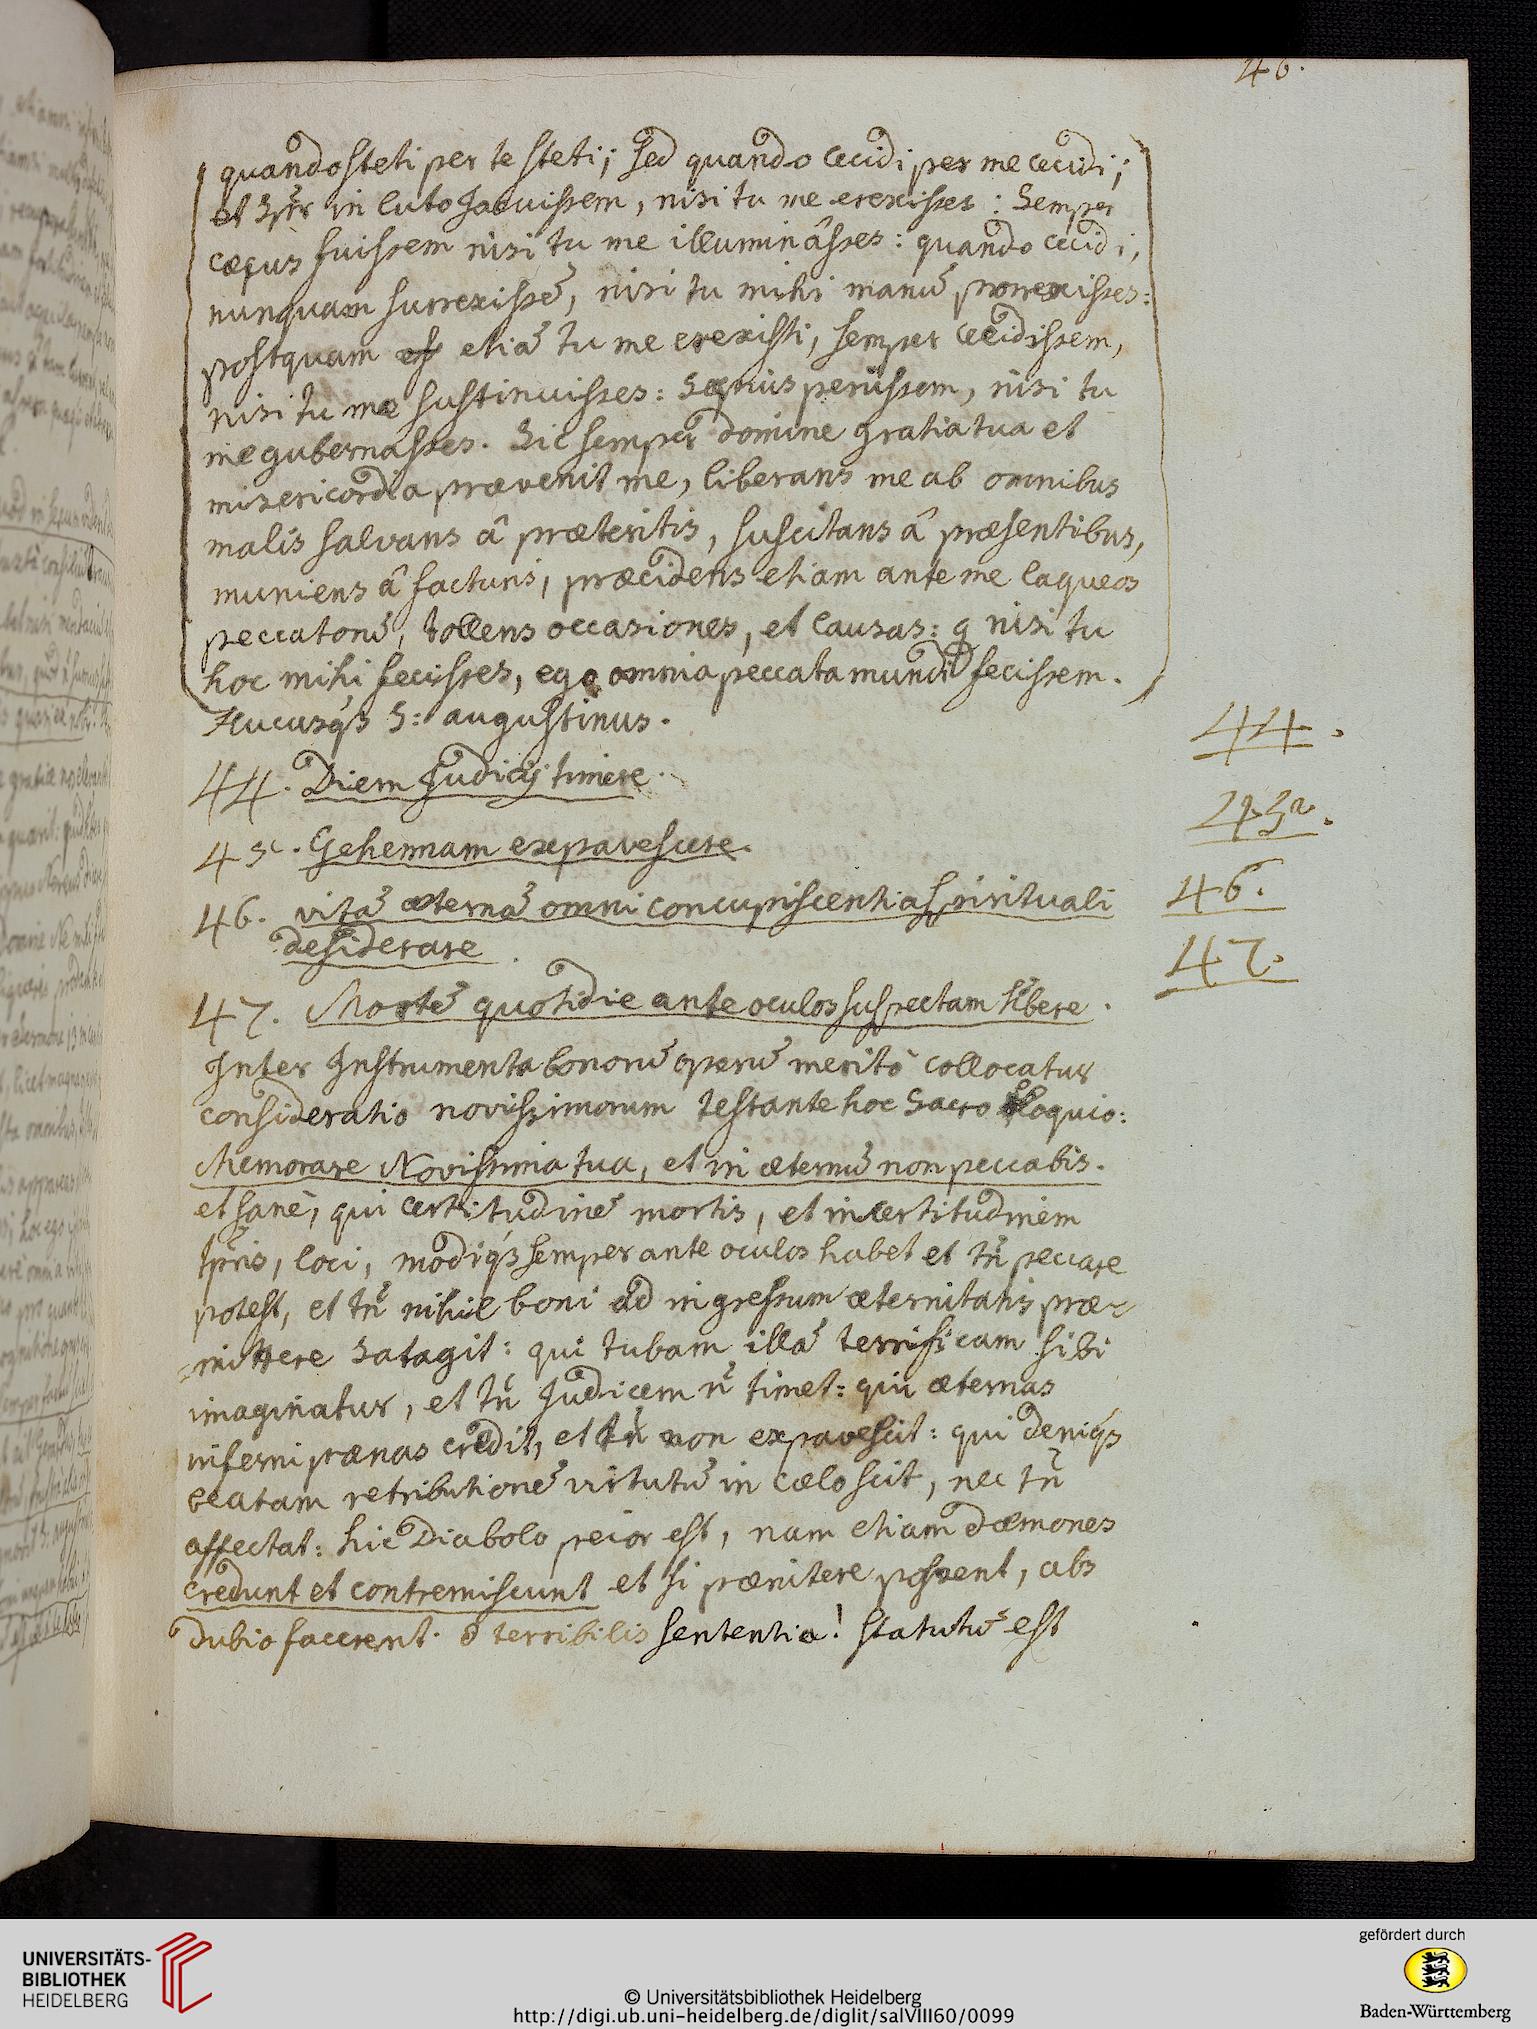 46.
quando steti per te steti; sed quando cecidi per me cecidi;
et spr̃ in luto Jacuissem, nisi tu me erexisses: Semper
cæcus fuissem nisi tu me illuminâsses: quando cecidi,
nunquam surrexissẽ, nisi tu mihi manũ porrexisses:
postquam etiã tu me erexisti, semper cecidissem,
nisi tu me sustinuisses: Sæpius periissem, nisi tu
me gubernasses. Sic semper domine gratia tua et
misericordia prævenit me, liberans me ab omnibus
malis salvans â præteritis, suscitans â præsentibus,
muniens â facturis, præcidens etiam ante me laqueos
peccatorũ, tollens occasiones, et causas: q nisi tu
hoc mihi fecisses, ego omnia peccata mundi fecissem.
Hucusq́ꝫ S: augustinus.
44. Diem Judicij timere.
44.
45. Gehennam expavescere.
45.
46. vitã æternã omni concupiscentia spirituali
46.
desiderare
47. Mortẽ quotidie ante oculos suspectam hr̃e
47.
Inter Instrumenta bonorũ operũ meritò collocatur
consideratio novissimorum testante hoc Sacro Eloquio:
Memorare Novissima tua, et in æternũ non peccabis.
et sanè, qui certitudinẽ mortis, et incertitudinem
tp̃ris, loci, modiq́ꝫ semper ante oculos habet et tñ peccare
potest, et tñ nihil boni ad ingressum æternitatis præ-
=mittere satagit: qui tubam illã terrificam sibi
imaginatur, et tñ Judicem ñ timet: qui æternas
inferni pœnas credit, et tñ non expavescit: qui deniq́ꝫ
beatam retributionẽ virtutũ in cælo scit, nec tñ
affectat: hic Diabolo peior est, nam etiam dæmones
credunt et contremiscunt et si pœnitere possent, abs
dubio facerent. ô terribilis sententia! statutũ est
UNIVERSITÄTS-
BIBLIOTHEK
HEIDELBERG
© Universitätsbibliothek Heidelberg
http://digi.ub.uni-heidelberg.de/diglit/salVIII60/0099
gefördert durch
Baden-Württemberg